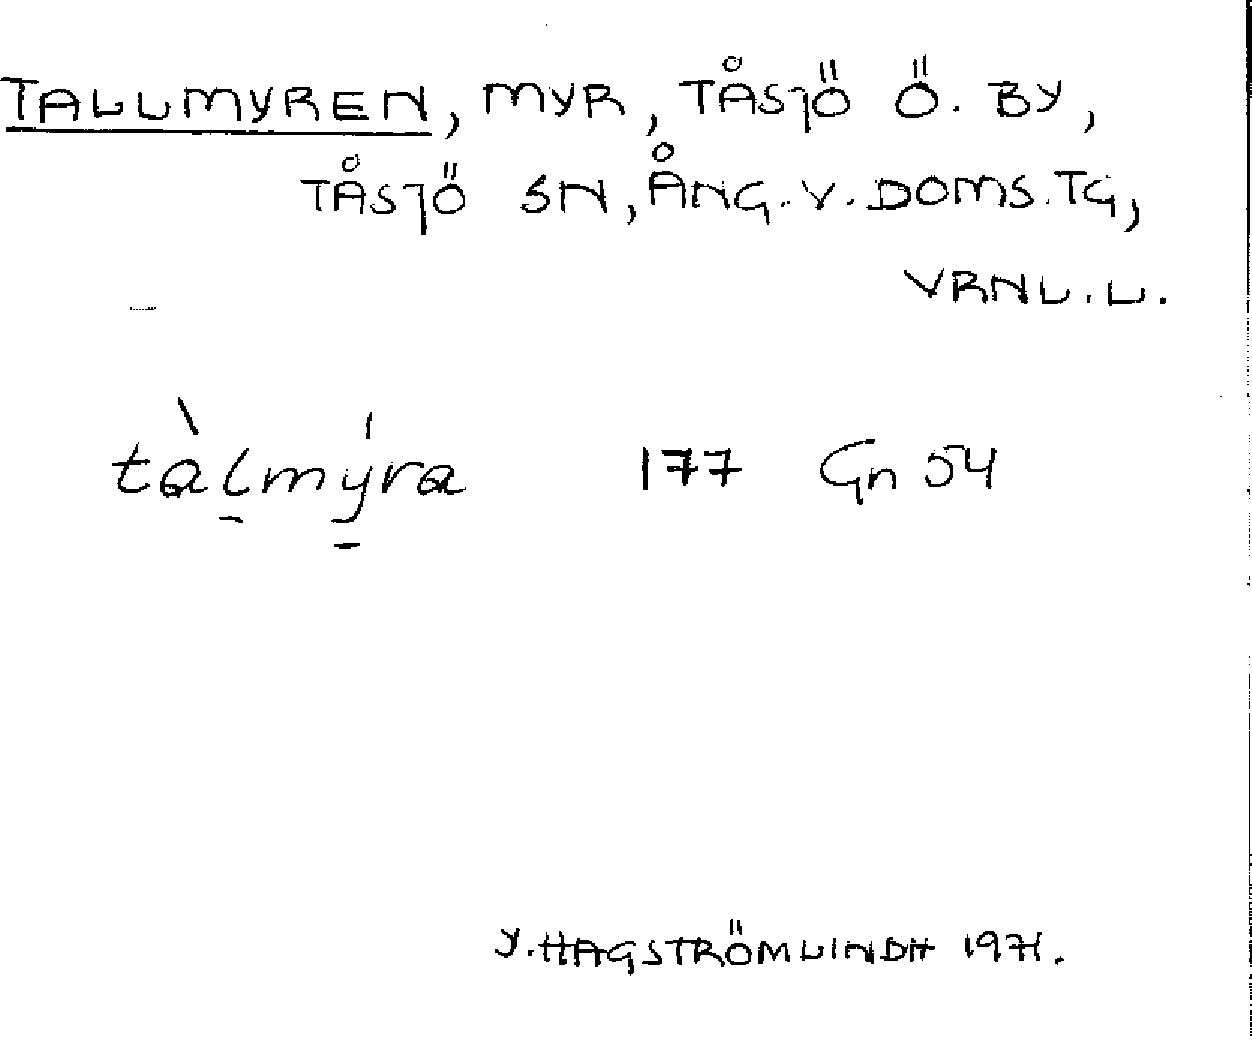 TALLMYREN, MYR, TÅSJÖ Ö. BY,
TÅSJÖ SN, ÅNG. V. DOMS. TG,
VRNL. L.
tàl̠mý̠ra 177 Gn 54
Y. HAGSTRÖM LINDH 1971.